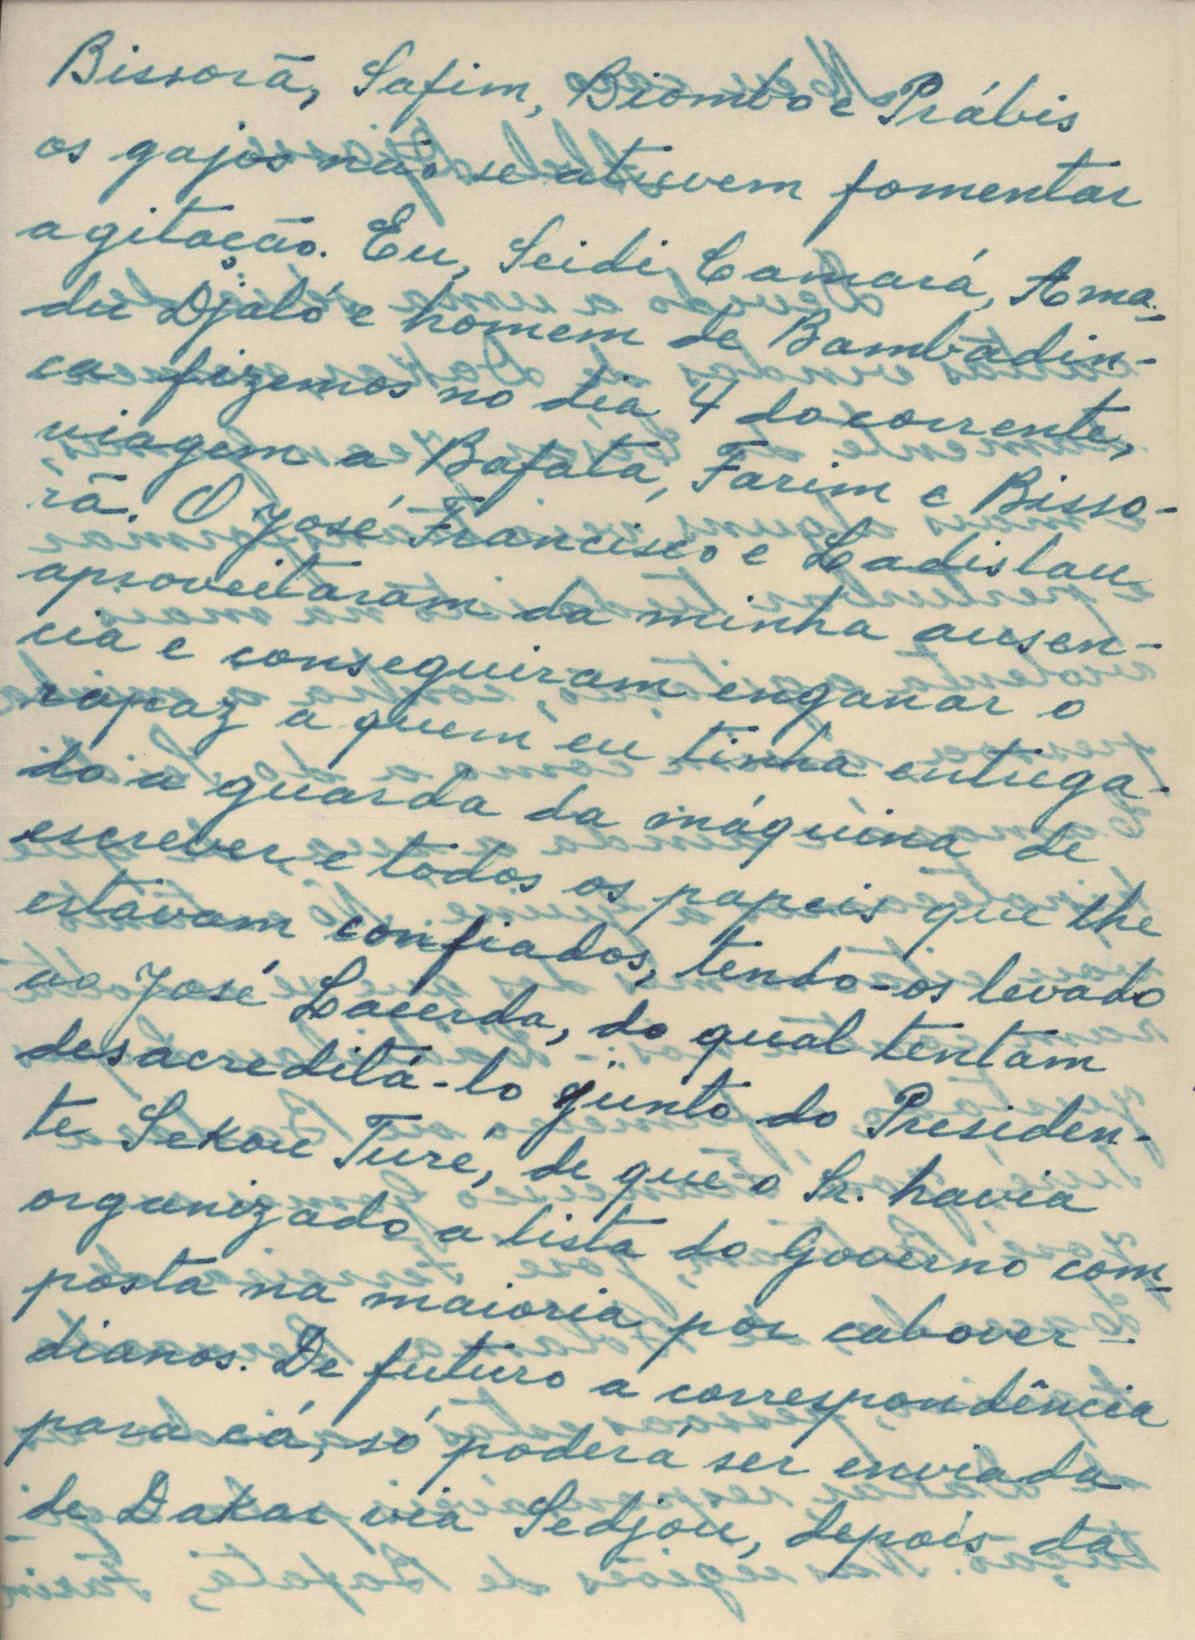 Bissorã, Safim, Biombo e Prábis
os gajos não se atrevem fomentar
agitação. Eu, Seidi Camará, Ama-
du Djaló e homem de Bambadin-
ca fizemos no dia 4 do corrente,
viagem a Bafata, Farim e Bisso-
rã. O José Francisco e Ladislau
aproveitaram da minha ausen-
cia e conseguiram enganar o
rapaz a quem eu tinha entrega-
do a guarda da máquina de
escrever, e todos os papeis que lhe
estavam confiados, tendo-os levado
ao José Lacerda, do qual tentam
desacreditá-lo junto do Presiden-
te Sekou Turé, de que o Sr. havia
organizado a lista do Governo com-
posta na maioria por cabover-
dianos. De futuro a correspondência
para cá, só poderá ser enviada
de Dakar via Sedjou, depois da